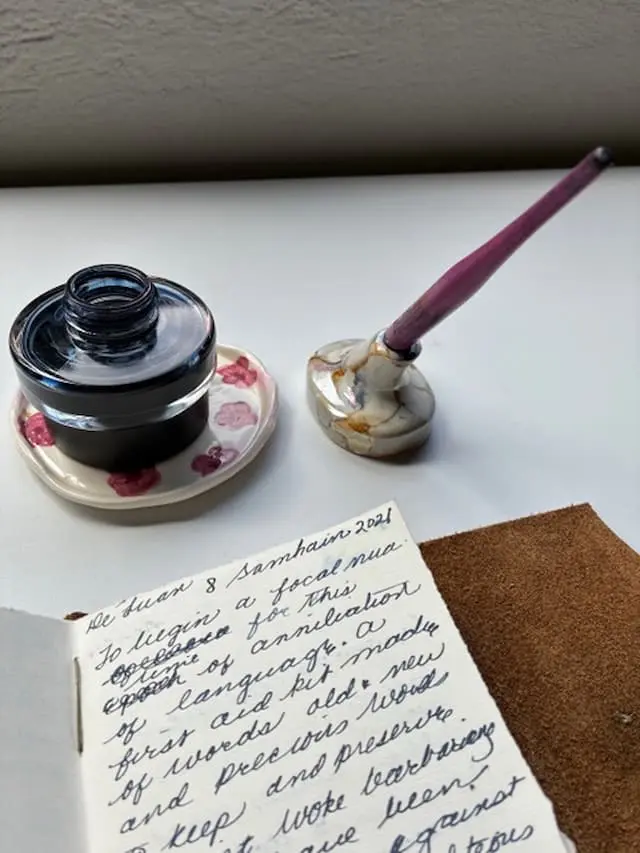 Dé Luan 8 Samhain 2021
To begin a focal nua
for this
time
of anniliation
of language. A
first aid kit made
of words old & new
and precious words
to keep and preserve.
woke barbarians
have been.
against